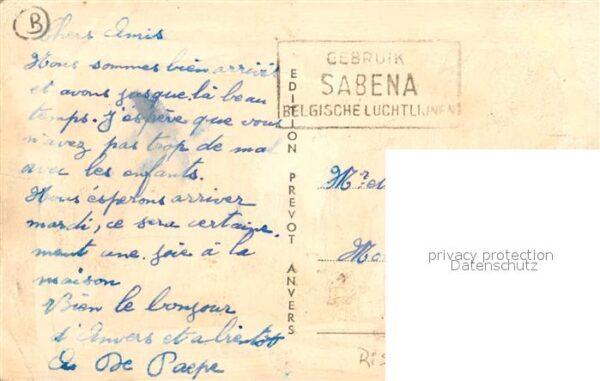 B
Chers Amis
Nous sommes bien arrivés
et avons jusque là beau
temps. j'espère que vous
n'avez pas trop de mal
avec les enfants.
Nous ésperons arriver
mardi, ce sera certaine.
ment une joie à la
maison
Bien le bonjour
d'Anvers et a bientôt
De Paepe
EDITION PREVOT ANVERS
GEBRUIK
SABENA
BELGISCHE LUCHTLIJNEN
Mr et
privacy protection
Datenschutz